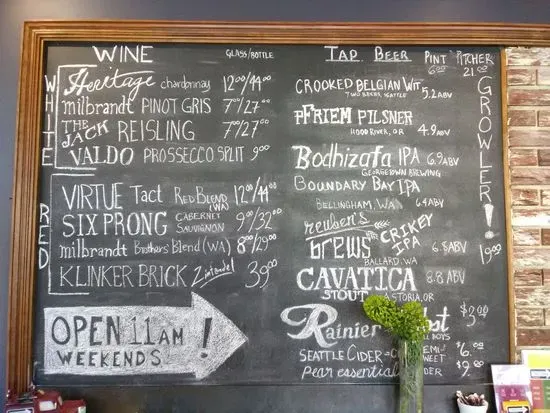 WINE GLASS/BOTTLE
WHITE
Heritage chardonnay 12.00/44.00
milbrandt PINOT GRIS 7.00/27.00
THE JACK REISLING 7.00/27.00
VALDO PROSSECCO SPLIT 9.00
RED
VIRTUE Tact RED BLEND (WA) 12.00/44.00
SIX PRONG CABERNET SAUVIGNON 9.00/32.00
milbrandt Brothers' Blend (WA) 8.00/29.00
KLINKER BRICK Zinfandel 39.00
OPEN 11AM
WEEKENDS !
TAP BEER PINT PITCHER
6.00 21.00
CROOKED BELGIAN WIT 5.2 ABV
TWO BEERS, SEATTLE
PFRIEM PILSNER
HOOD RIVER, OR 4.9 ABV
Bodhizafa IPA 6.9 ABV
GEORGETOWN BREWING
BOUNDARY BAY IPA
BELLINGHAM, WA 6.4 ABV
reuben's
brews CRIKEY IPA 6.8 ABV
BALLARD, WA
CAVATICA 8.8 ABV
STOUT ASTORIA, OR
GROWLER!!
19.00
Rainier $3.00
SEATTLE CIDER $6.00
pear essential $9.00